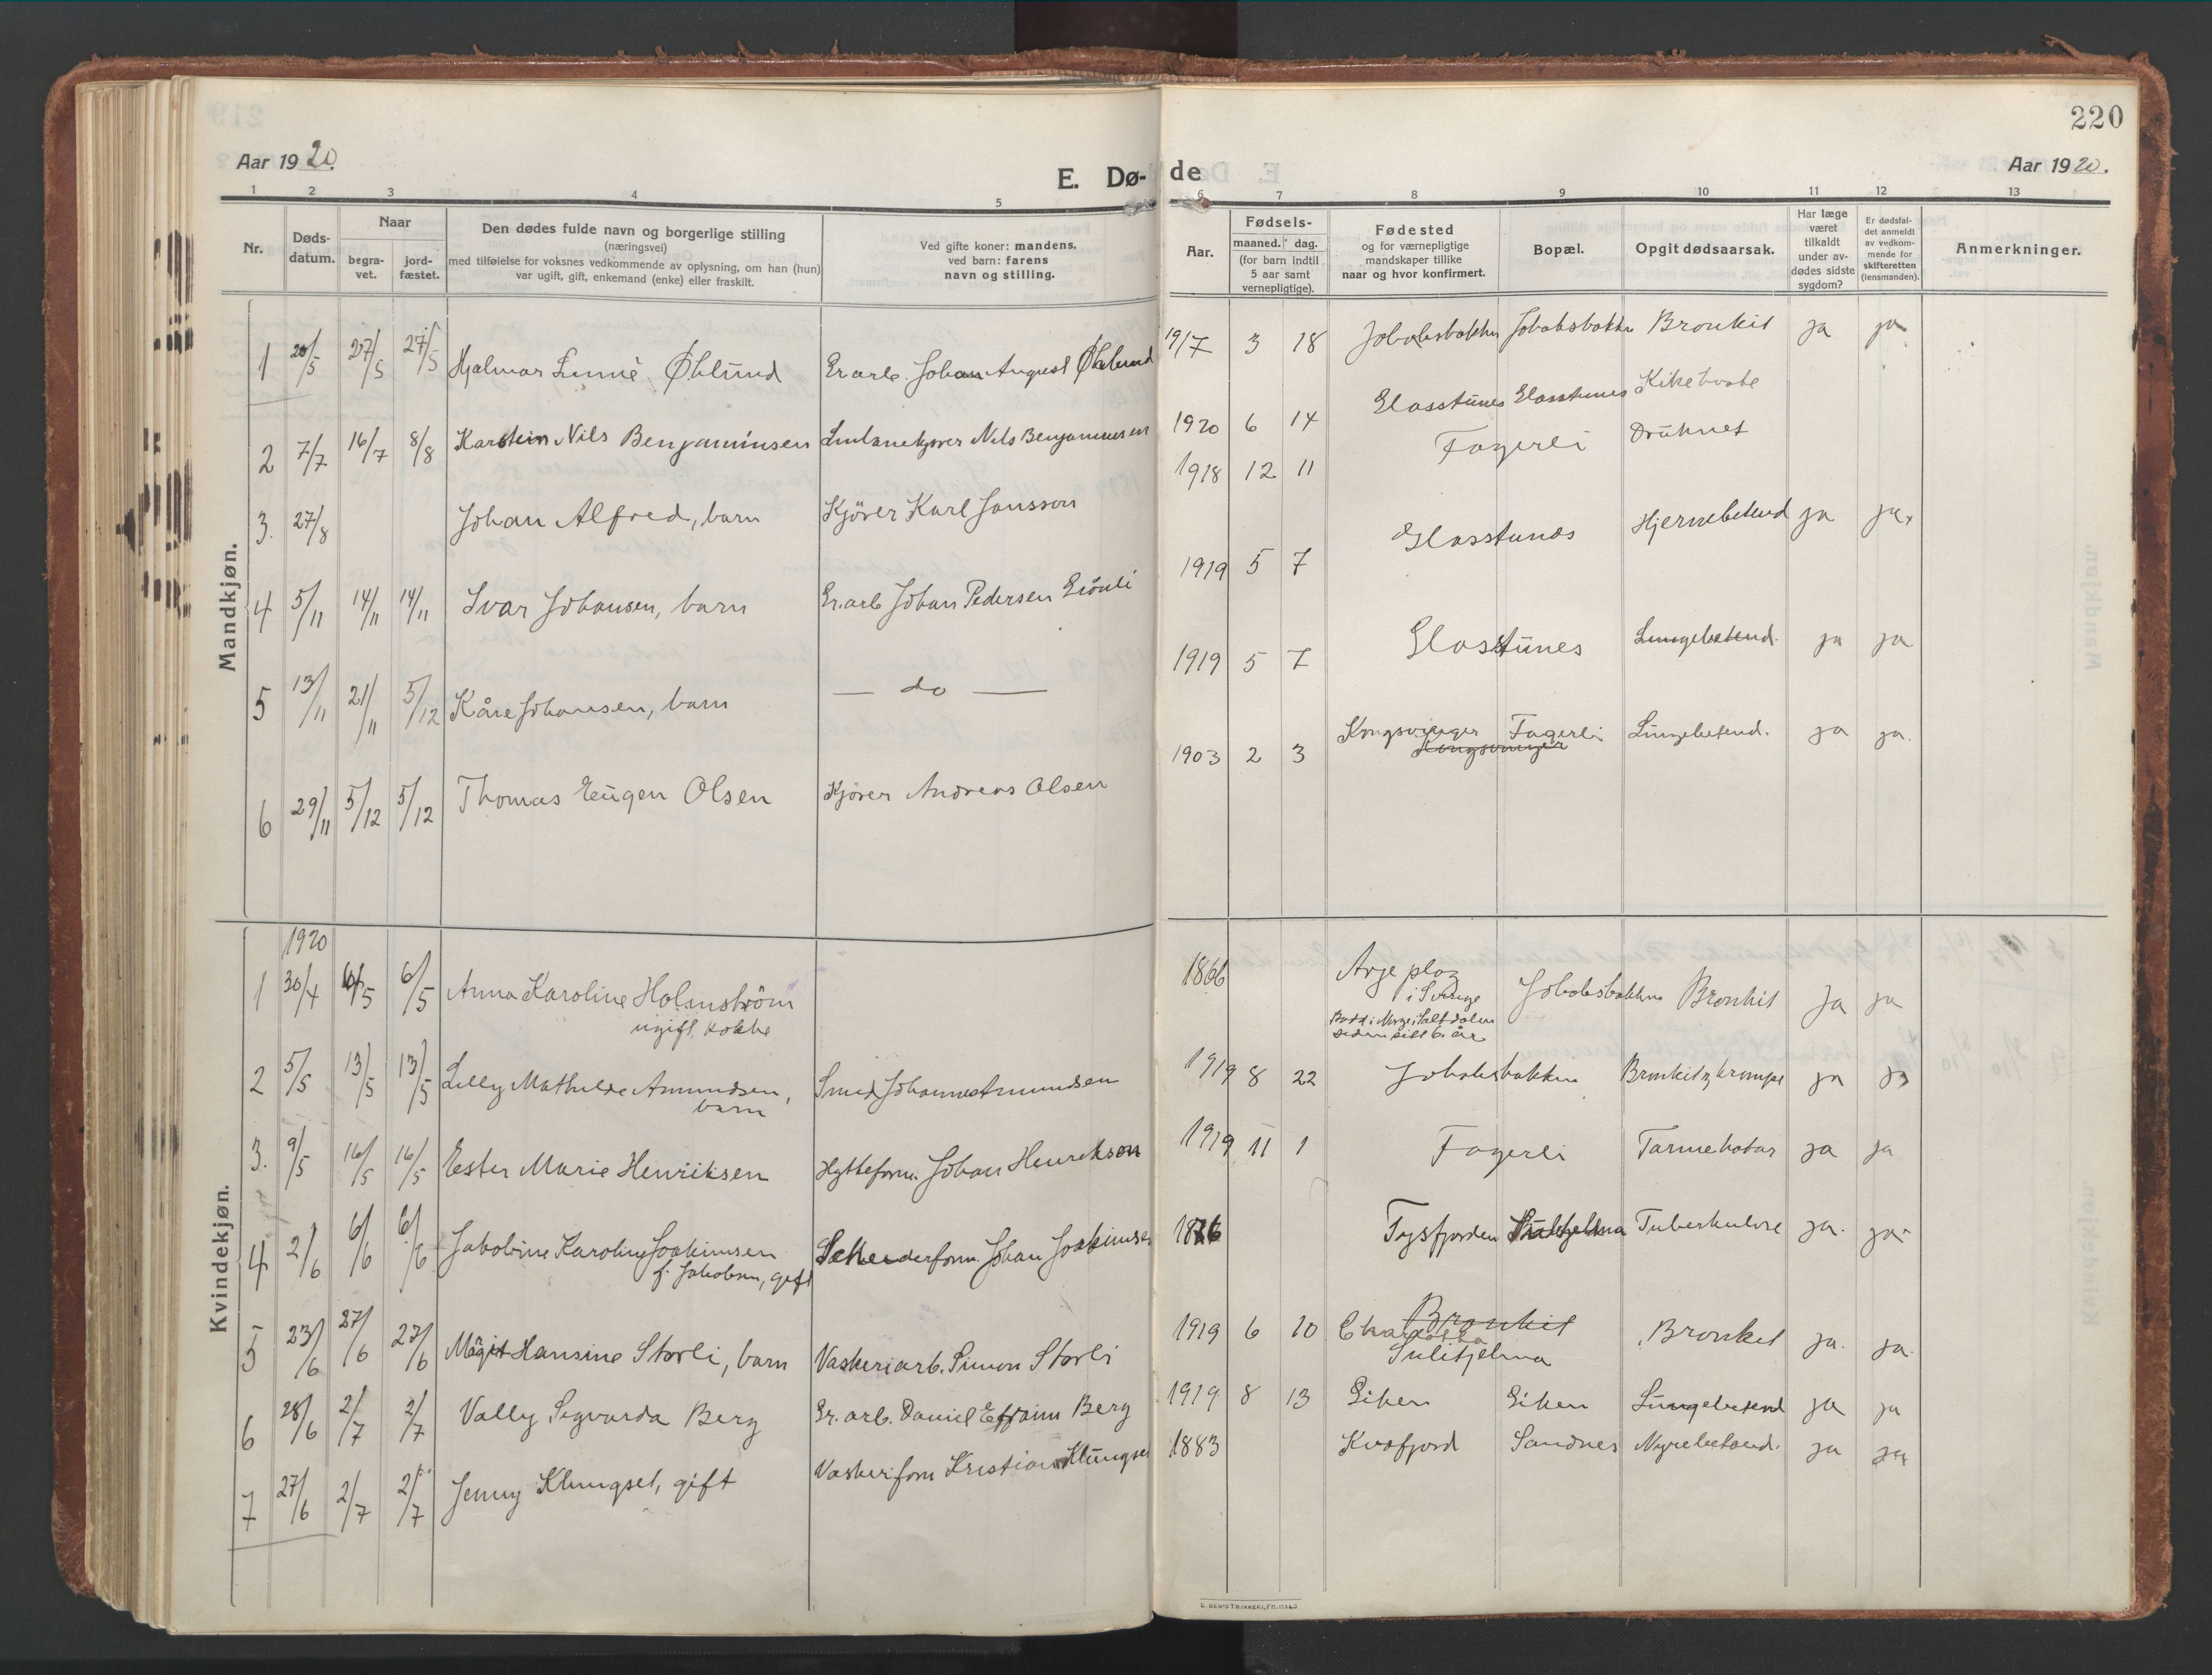 220
Aar 1920.
E. Dø-
de
Aar 1920.
1 2 3 4 5 6 7 8 9 10 11 12 13
Nr.
Døds-
datum.
Naar
begra-
vet.
jord-
fæstet.
Den dødes fulde navn og borgerlige stilling
(næringsvei)
med tilføielse for voksnes vedkommende av oplysning, om han (hun)
var ugift, gift, enkemand (enke) eller fraskilt.
Ved gifte koner: mandens,
ved barn: farens
navn og stilling.
Aar.
Fødsels-
maaned. dag.
(for barn indtil
5 aar samt
vernepligtige).
Fødested
og for værnepligtige
mandskaper tillike
naar og hvor konfirmert.
Bopæl.
Opgit dødsaarsak.
Har læge
været
tilkaldt
under av-
dødes sidste
sygdom?
Er dødsfal-
det anmeldt
av vedkom-
mende for
skifteretten
(lensmanden).
Anmerkninger.
Mandkjøn.
1 20/5 27/5 27/5 Hjalmar Øhlund Er.arb. Johan August Øhlund 1917 3 18 Jakobsbakken Jakobsbakken Bronkit ja ja
2 7/7 16/7 8/8 Karstein Nils Benjaminsen Nils Benjaminsen 1920 6 14 Glasstunes Glasstunes Kikehoste
3. 27/8 Johan Alfred, barn Kjører Karl Jansson 1918 12 11 Fagerli Druknet
4 5/11 14/11 14/11 Ivar Johansen, barn Er.arb Johan Pedersen 1919 5 7 Glasstunes Hjernebetend ja ja.
5 13/11 21/11 5/12 Kåre Johansen, barn — do — 1919 5 7 Glasstunes Lungebetend. ja ja
6 29/11 5/12 5/12 Thomas Eugen Olsen Kjører Andreas Olsen 1903 2 3 Kongsvinger Fagerli Lungebetend. ja ja.
Kongsvinger
Kvindekjøn.
1920
1 30/4 6/5 6/5 Anna Karoline Holmström 1866 Arjeplog Jakobsbakken Bronkit ja ja
ugift, kokke
i Sverige
Bodd i Norge i Saltdalen
siden sitt 6. år
2 5/5 13/5 13/5 Lilly Mathilde Amundsen, Smed Johannes Amundsen 1919 8 22 Jakobsbakken Bronkit og krampe ja ja
barn
3. 9/5 16/5 16/5 Ester Marie Henriksen Hytteform. Johan Henriksen 1919 11 1 Fagerli Tarmekatar ja ja
4 2/6 6/6 6/6 Jakobine Karoline Joakimsen Johan Joakimsen 1876 Tysfjorden Sulitjelma Tuberkulose ja. ja
f. Jakobsen, gift
5 23/6 27/6 27/6 Mågit Hansine Storli, barn Vaskeriarb. Simon Storli 1919 6 10 Charlotta Bronkit ja. ja.
Bronkit
Sulitjelma
6 28/6 2/7 2/7 Vally Sigvarda Berg Er. arb. Daniel Efraim Berg 1919 8 13 Giken Giken Lungebetend ja ja
7 27/6 2/7 2/7 Jenny Klungset, gift Vaskeriform Kristian Klungset 1883 Kvæfjord Sandnes Nyrebetænd. ja ja